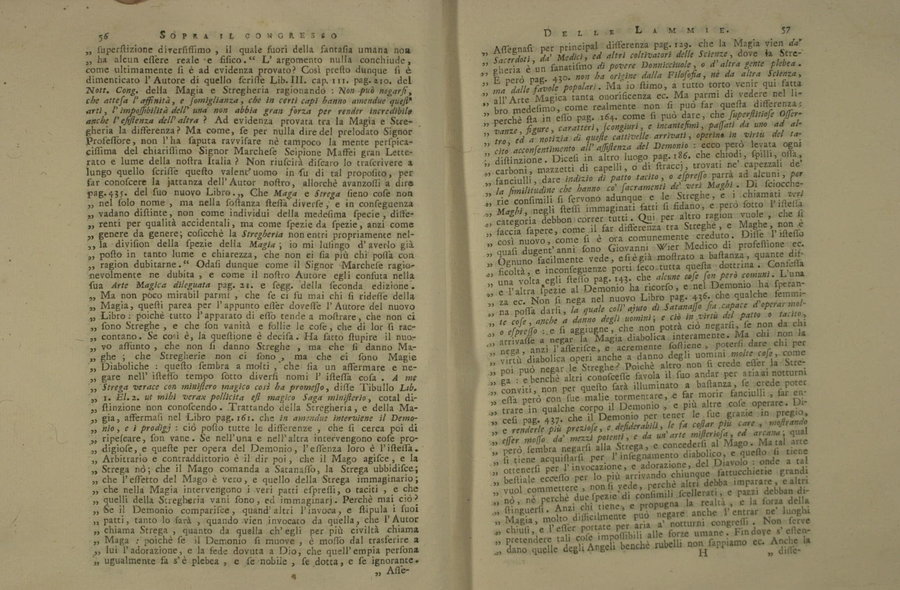 56 SOPRA IL CONGRESSO
„ ſuperſtizione diverſiſſimo, il quale fuori della fantaſia umana non
„ ha alcun eſſere reale e fiſico. “ L' argomento nulla conchiude,
come ultimamente ſi è ad evidenza provato? Così preſto dunque ſi è
dimenticato l' Autore di quello ſcriſſe Lib. III. cap. III. pag. 210. del
Nott. Cong. della Magia e Stregheria ragionando: Non può negarſi,
che atteſa l' affinità, e ſomiglianza, che in certi capi hanno amendue queſt'
arti, l' impoſſibilità dell' una non abbia gran forza per render incredibile
anche l' eſiſtenza dell' altra? Ad evidenza provata tra la Magia e Stre-
gheria la differenza? Ma come, ſe per nulla dire del prelodato Signor
Profeſſore, non l' ha ſaputa ravviſare nè tampoco la mente perſpica-
ciſſima del chiariſſimo Signor Marcheſe Scipione Maffei gran Lette-
rato e lume della noſtra Italia? Non riuſcirà diſcaro lo traſcrivere a
lungo quello ſcriſſe queſto valent' uomo in ſu di tal propoſito, per
far conoſcere la jattanza dell' Autor noſtro, allorchè avanzoſſi a dire
pag. 431. del ſuo nuovo Libro. „ Che Maga e Strega ſieno coſe non
„ nel ſolo nome, ma nella ſoſtanza ſteſſa diverſe, e in conſeguenza
„ vadano diſtinte, non come individui della medeſima ſpecie, diffe-
„ renti per qualità accidentali, ma come ſpezie da ſpezie, anzi come
„ genere da genere; coſicchè la Stregheria non entri propriamente nel-
„ la diviſion della ſpezie della Magia; io mi luſingo d' averlo già
„ poſto in tanto lume e chiarezza, che non ci ſia più chi poſſa con
„ ragion dubitarne. “ Odaſi dunque come il Signor Marcheſe ragio-
nevolmente ne dubita, e come il noſtro Autore egli confuta nella
ſua Arte Magica dileguata pag. 21. e ſegg. della ſeconda edizione.
„ Ma non poco mirabil parmi, che ſe ci fu mai chi ſi rideſſe della
„ Magia, queſti parea per l' appunto eſſer doveſſe l' Autore del nuovo
„ Libro: poichè tutto l' apparato di eſſo tende a moſtrare, che non ci
„ ſono Streghe, e che ſon vanità e follie le coſe, che di lor ſi rac-
„ contano. Se così è, la queſtione è deciſa. Ha fatto ſtupire il nuo-
„ vo aſſunto, che non ſi danno Streghe, ma che ſi danno Ma-
„ ghe; che Stregherie non ci ſono, ma che ci ſono Magie
„ Diaboliche: queſto ſembra a molti, che ſia un affermare e ne-
„ gare nell' iſteſſo tempo ſotto diverſi nomi l' iſteſſa coſa. A me
„ Strega verace con miniſtero magico così ha promeſſo, diſſe Tibullo Lib.
„ 1. El. 2. ut mihi verax pollicita eſt magico Saga miniſterio, cotal di-
„ ſtinzione non conoſcendo. Trattando della Stregheria e della Ma-
„ gia, affermaſi nel Libro pag. 161. che in amendue interviene il Demo-
„ nio, e i prodigj: ciò poſto tutte le differenze, che ſi cerca poi di
„ ripeſcare, ſon vane. Se nell' una e nell' altra intervengono coſe pro-
„ digioſe, e queſte per opera del Demonio, l' eſſenza loro è l' iſteſſa.
„ Arbitrario e contraddittorio è il dir poi, che il Mago agiſce, e la
„ Strega nò; che il Mago comanda a Satanaſſo, la Strega ubbidiſce;
„ che l' effetto del Mago è vero, e quello della Strega immaginario;
„ che nella Magia intervengono i veri patti eſpreſſi, o taciti, e che
„ quelli della Stregheria vani ſono, ed immaginarj. Perchè mai ciò?
„ Se il Demonio compariſce, quand' altri l' invoca, e ſtipula i ſuoi
„ patti, tanto lo farà, quando vien invocato da quella, che l' Autor
„ chiama Strega, quanto da quella ch' egli per più civiltà chiama
„ Maga: poichè ſe il Demonio ſi muove, è moſſo dal trasferire a
„ lui l' adorazione, e la fede dovuta a Dio, che quell' empia perſona
„ ugualmente fa s' è plebea, e ſe nobile, ſe dotta, e ſe ignorante.
„ Aſſe-
DELLE LAMMIE. 57
„ Aſſegnaſi per principal differenza pag. 129. che la Magia vien da'
„ Sacerdoti, da' Medici, ed altri coltivatori delle Scienze, dove la Stre-
„ gheria è un fanatiſmo di povere Donnicciuole, o d' altra gente plebea.
„ E però pag. 430. non ha origine dalla Filoſofia, nè da altra Scienza,
„ ma dalle favole popolari. Ma io ſtimo, a tutto torto venir quì fatta
„ all' Arte Magica tanta onorificenza ec. Ma parmi di vedere nel li-
„ bro medeſimo, come realmente non ſi può far queſta differenza:
„ perchè ſta in eſſo pag. 164. come ſi può dare, che ſuperſtizioſe Oſſer-
„ vanze, figure, caratteri, ſcongiuri, e incanteſimi, paſſati da uno ad al-
„ tro, ed a notizia di queſte cattivelle arrivati, operino in virtù del ta-
„ cito acconſentimento all' aſſiſtenza del Demonio: ecco però levata ogni
„ diſtinzione. Diceſi in altro luogo pag. 186. che chiodi, ſpilli, oſſa,
„ carboni, mazzetti di capelli, o di ſtracci, trovati ne' capezzali de'
„ fanciulli, dare indizio di patto tacito, o eſpreſſo parrà ad alcuni, per
„ la ſimilitudine che hanno co' ſacramenti de' veri Maghi. Di ſciocche-
„ rie conſimili ſi ſervono adunque e le Streghe, e i chiamati veri
„ Maghi, negli ſteſſi immaginati fatti ſi fidano, e però ſotto l' iſteſſa
„ categoria debbon correr tutti. Qui per altro ragion vuole, che ſi
„ faccia ſapere, come il far differenza tra Streghe, e Maghe, non è
„ così nuovo, come ſi è ora comunemente creduto. Diſſe l' iſteſſo
„ quaſi dugent' anni ſono Giovanni Wier Medico di profeſſione ec.
„ Ognuno facilmente vede, eſi è già moſtrato a baſtanza, quante dif-
„ ficoltà, e inconſeguenze porti ſeco tutta queſta dottrina. Confeſſa
„ una volta egli ſteſſo pag. 143. che alcune coſe ſon però comuni. L' una
„ e l' altra ſpezie al Demonio ha ricorſo, e nel Demonio ha ſperan-
„ za ec. Non ſi nega nel nuovo Libro pag. 436. che qualche femmi-
„ na poſſa darſi, la quale coll' ajuto di Satanaſſo ſia capace d' operar mol-
„ te coſe, anche a danno degli uomini; e ciò in virtù del patto o tacito,
„ o eſpreſſo: e ſi aggiugne, che non potrà ciò negarſi, ſe non da chi
„ arrivaſſe a negar la Magia diabolica interamente. Ma chi non la
„ nega, anzi l' aſſeriſce, e acremente ſoſtiene, poterſi dare chi per
„ virtù diabolica operi anche a danno degli uomini molte coſe, come
„ poi può negar le Streghe? Poichè altro non ſi crede eſſer la Stre-
„ ga: e benchè altri conoſceſſe favola il ſuo andar per aria ai notturni
„ conviti, non per queſto ſarà illuminato a baſtanza, ſe crede poter
„ eſſa però con ſue malie tormentare, e far morir fanciulli, far en-
„ trare in qualche corpo il Demonio, e più altre coſe operare. Di-
„ ceſi pag. 437. che il Demonio per tener le ſue grazie in pregio,
„ e renderle più prezioſe, e deſiderabili, le fa coſtar più care, moſtrando
„ eſſer moſſo da' mezzi potenti, e da un' arte miſterioſa, ed arcana; qual
„ però ſembra negarſi alla Strega, e concederſi al Mago. Ma tal arte
„ ſi tiene acquiſtarſi per l' inſegnamento diabolico, e queſto ſi tiene
„ ottenerſi per l' invocazione, e adorazione, del Diavolo: onde a tal
„ beſtiale ecceſſo per lo più arrivando chiunque fattucchierie grandi
„ vuol commettere, non ſi vede, perchè altri debba imparare, e altri
„ nò, nè perchè due ſpezie di conſimili ſcellerati, e pazzi debban di-
„ ſtinguerſi. Anzi chi tiene, e propugna la realtà, e la forza della
„ Magia, molto difficilmente può negare anche l' entrar ne' luoghi
„ chiuſi, e l' eſſer portate per aria a' notturni congreſſi. Non ſerve
„ pretendere tali coſe impoſſibili alle forze umane. Fin dove s' eſten-
„ dano quelle degli Angeli benchè rubelli non ſappiamo ec. Anche la
H „ diffe-